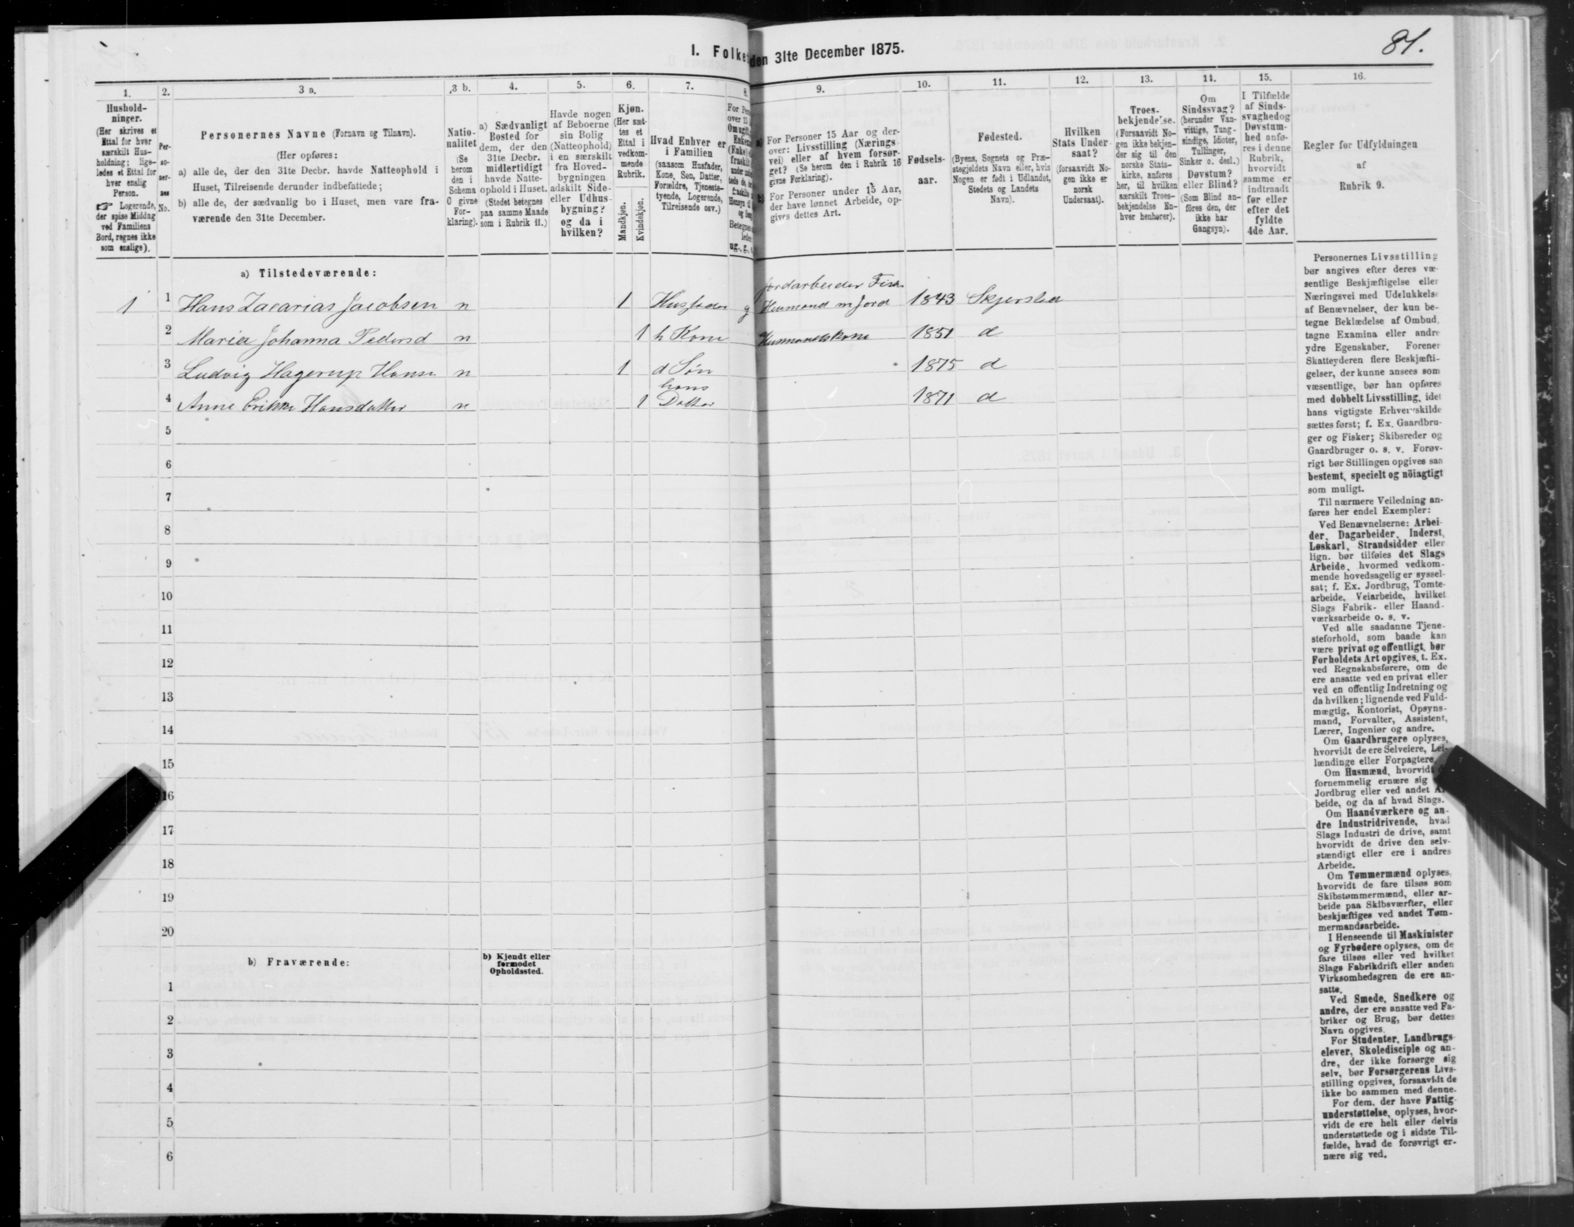 I. Folke
den 31te December 1875.
81.
1.
2.
3 a.
3 b.
4.
5.
6.
7.
8.
9.
10.
11.
12.
13.
14.
15.
16.
Hushold-
ninger.
(Her skrives et
Ettal for hver
særskilt Hus-
holdning; lige-
ledes et Ettal for
hver enslig
Person.
☞ Logerende,
der spise Middag
ved Familiens
Bord, regnes ikke
som enslige).
Per-
so-
ner-
nes
No.
Personernes Navne (Fornavn og Tilnavn).
(Her opføres:
a) alle de, der den 31te Decbr. havde Natteophold i
Huset, Tilreisende derunder indbefattede;
b) alle de, der sædvanlig bo i Huset, men vare fra-
værende den 31te December.
Natio-
nalitet
(Se
herom
den i
Schema
O givne
For-
klaring).
a) Sædvanligt
Bosted for
dem, der den
31te Decbr.
midlertidigt
havde Natte-
ophold i Huset.
(Stedet betegnes
paa samme Maade
som i Rubrik 11.)
Havde nogen
af Beboerne
sin Bolig
(Natteophold)
i en særskilt
fra Hoved-
bygningen
adskilt Side-
eller Udhus-
bygning?
og da i
hvilken?
Kjøn.
(Her sæt-
tes et
Ettal i
vedkom-
mende
Rubrik.
Mandkjøn.
Kvindekjøn.
Hvad Enhver er
i Familien
(saasom Husfader,
Kone, Søn, Datter,
Forældre, Tjeneste-
tyende, Logerende,
Tilreisende osv.)
For Personer 15 Aar og der-
over: Livsstilling (Nærings-
vei) eller af hvem forsør-
get? (Se herom den i Rubrik 16
givne Forklaring).
For Personer under 15 Aar,
der have lønnet Arbeide, op-
gives dettes Art.
Fødsels-
aar.
Fødested.
(Byens, Sognets og Præ-
stegjeldets Navn eller, hvis
Nogen er født i Udlandet,
Stedets og Landets
Navn).
Hvilken
Stats Under-
saat?
(forsaavidt No-
gen ikke er
norsk
Undersaat).
Troes-
bekjendelse.
(Forsaavidt No-
gen ikke bekjen-
der sig til den
norske Stats-
kirke, anføres
her, til hvilken
særskilt Troes-
bekjendelse En-
hver henhører).
Om
Sindssvag?
(herunder Van-
vittige, Tung-
sindige, Idioter,
Tullinger,
Sinker o. desl.)
Døvstum?
eller Blind?
(Som Blind an-
føres den, der
ikke har
Gangsyn).
I Tilfælde
af Sinds-
svaghed og
Døvstum-
hed anfø-
res i denne
Rubrik,
hvorvidt
samme er
indtraadt
før eller
efter det
fyldte
4de Aar.
Regler for Udfyldningen
af
Rubrik 9.
a) Tilstedeværende:
1 1 Hans Zacarias Jacobsen n 1 Husfader g Jordarbeider Fisk
Husmand m Jord 1843 Skjerstad
2 Maria Johanna Pedersd n 1 h Kone Husmandskone 1851 d
3 Ludvig Hagerup Hansn n 1 d Søn 1875 d
4 Anne Hansdatter n 1 hans
Datter 1871 d
5
6
7
8
9
10
11
12
13
14
15
16
17
18
19
20
b) Fraværende:
b) Kjendt eller
formodet
Opholdssted.
1
2
3
4
5
6
Personernes Livsstilling
bør angives efter deres væ-
sentlige Beskjæftigelse eller
Næringsvei med Udelukkelse
af Benævnelser, der kun be-
tegne Beklædelse af Ombud,
tagne Examina eller andre
ydre Egenskaber. Forener
Skatteyderen flere Beskjæfti-
gelser, der kunne ansees som
væsentlige, bør han opføres
med dobbelt Livsstilling, idet
hans vigtigste Erhvervskilde
sættes først; f. Ex. Gaardbru-
ger og Fisker; Skibsreder og
Gaardbruger o. s. v. Forøv-
rigt bør Stillingen opgives saa
bestemt, specielt og nøiagtigt
som muligt.
Til nærmere Veiledning an-
føres her endel Exempler:
Ved Benævnelserne: Arbei-
der, Dagarbeider, Inderst,
Løskarl, Strandsidder eller
lign. bør tilføies det Slags
Arbeide, hvormed vedkom-
mende hovedsagelig er syssel-
sat; f. Ex. Jordbrug, Tomte-
arbeide, Veiarbeide, hvilket
Slags Fabrik- eller Haand-
værksarbeide o. s. v.
Ved alle saadanne Tjene-
steforhold, som baade kan
være privat og offentligt, bør
Forholdets Art opgives, t. Ex.
ved Regnskabsførere, om de
ere ansatte ved en privat eller
ved en offentlig Indretning og
da hvilken; lignende ved Fuld-
mægtig, Kontorist, Opsyns-
mand, Forvalter, Assistent,
Lærer, Ingeniør og andre.
Om Gaardbrugere oplyses,
hvorvidt de ere Selveiere, Lei-
lændinge eller Forpagtere.
Om Husmænd, hvorvidt
fornemmelig ernære sig
Jordbrug eller ved andet Ar-
beide, og da af hvad Slags.
Om Haandværkere og an-
dre Industridrivende, hvad
Slags Industri de drive, samt
hvorvidt de drive den selv-
stændigt eller ere i andres
Arbeide.
Om Tømmermænd oplyses,
hvorvidt de fare tilsøs som
Skibstømmermænd, eller ar-
beide paa Skibsværfter, eller
beskjæftiges ved andet Tøm-
mermandsarbeide.
I Henseende til Maskinister
og Fyrbødere oplyses, om de
fare tilsøs eller ved hvilket
Slags Fabrikdrift eller anden
Virksomhedsgren de ere an-
satte.
Ved Smede, Snedkere og
andre, der ere ansatte ved Fa-
briker og Brug, bør dettes
Navn opgives.
For Studenter, Landbrugs-
elever, Skoledisciple og an-
dre, der ikke forsørge sig
selv, bør Forsørgerens Livs-
stilling opgives, forsaavidt de
ikke bo sammen med denne.
For dem, der have Fattig-
understøttelse, oplyses, hvor-
vidt de ere helt eller delvis
understøttede og i sidste Til-
fælde, hvad de forøvrigt er-
nære sig ved.